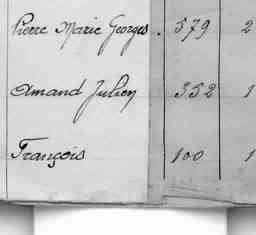 Pierre Marie Georges. 579 2
Amand Julien 352 1
François 100 1